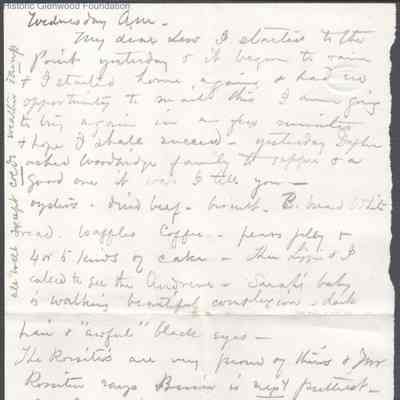 Historic Glenwood Foundation
Wednesday A.M. -
My dear Lou I started to the
Point yesterday & it began to rain
& I started home again & had no
opportunity to mail this I am going
to try again in a few minutes
& hope I shall succeed - yesterday
asked Woodbridge family to supper & a
good one it was I tell you -
oysters - dried beef - biscuit - B. bread White
bread. Waffles Coffee - pears jelly &
4 or 5 kinds of cake - then Lizzie & I
called to see the - Sarah's baby
is walking beautiful complexion - dark
hair & "awful" black eyes -
The Rossiters are very proud of theirs & Mr
Rossiter says is next prettiest -
all well except colds weather